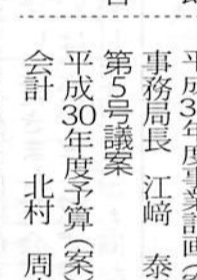 平成30年度事業計画(案
事務局長 江﨑 泰
第5号議案
平成30年度予算(案)
会計 北村 周